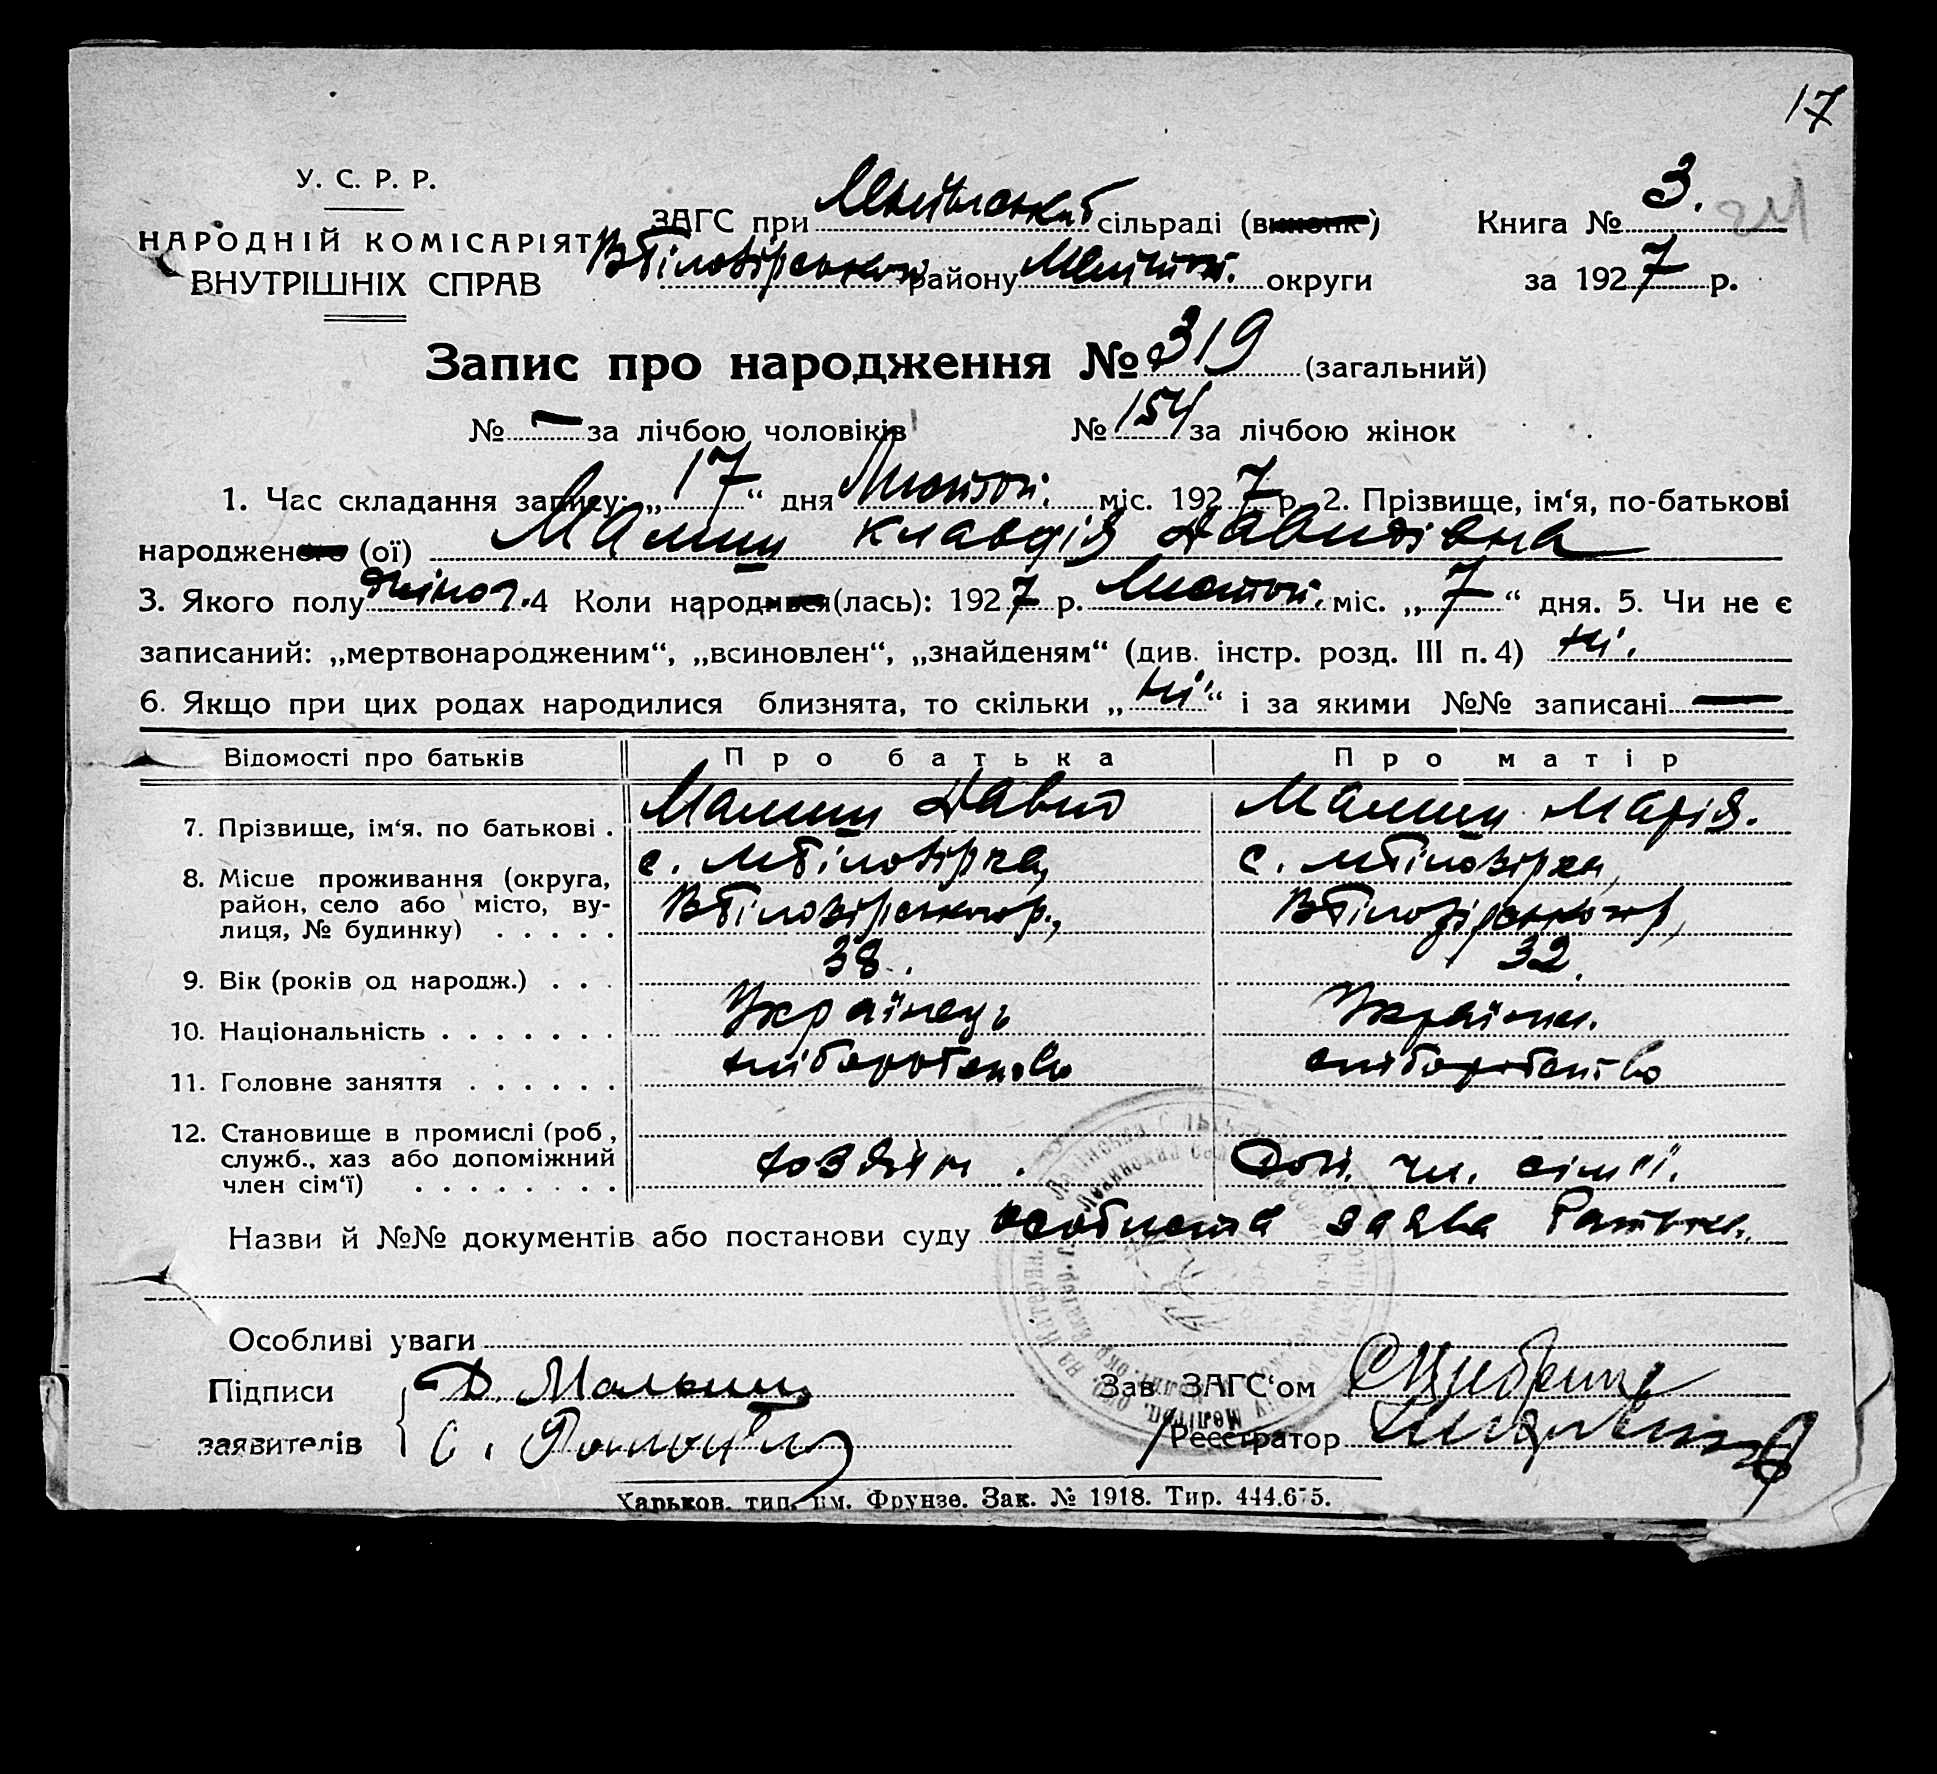 17
У. С. Р. Р.
НАРОДНІЙ КОМІСАРІЯТ
ВНУТРІШНІХ СПРАВ
ЗАГС при сільраді (виконк)
району Мелітоп. округи
Книга № 3.
за 1927 р.
Запис про народження № 319 (загальний)
№ — за лічбою чоловіків № 154 за лічбою жінок
1. Час складання запису: „17“ дня Лютого міс. 1927 р. 2. Прізвище, ім'я, по-батькові
народженого (ої) Малиш Клавдія Давидівна
3. Якого полу жіноч. 4 Коли народився (лась): 1927 р. Лютого міс. „7“ дня. 5. Чи не є
записаний: „мертвонародженим“, „всиновлен“, „знайденям“ (див. інстр. розд. III п. 4) ні.
6. Якщо при цих родах народилися близнята, то скільки „ні“ і за якими №№ записані —
Відомості про батьків Про батька Про матір
7. Прізвище, ім'я. по батькові . Малиш Давид Малиш Марія.
8. Місце проживання (округа, с. МБілозірка, с. МБілозірка,
район, село або місто, ву- ВБілозірського р., ВБілозірського р,
лиця, № будинку) . . . . .
9. Вік (років од народж.) . . . 38. 32.
10. Національність . . . . . . . Українець Українка.
11. Головне заняття . . . . . . хліборобство хліборобство
12. Становище в промислі (роб,
служб., хаз або допоміжний хозяїн . Доп. чл. сім'ї.
член сім'ї) . . . . . . . .
Назви й №№ документів або постанови суду особиста заява батька.
Особливі уваги
Підписи Д Малыш Зав. ЗАГС'ом
заявителів Реєстратор
Харьков. тип. им. Фрунзе. Зак. № 1918. Тир. 444.675.